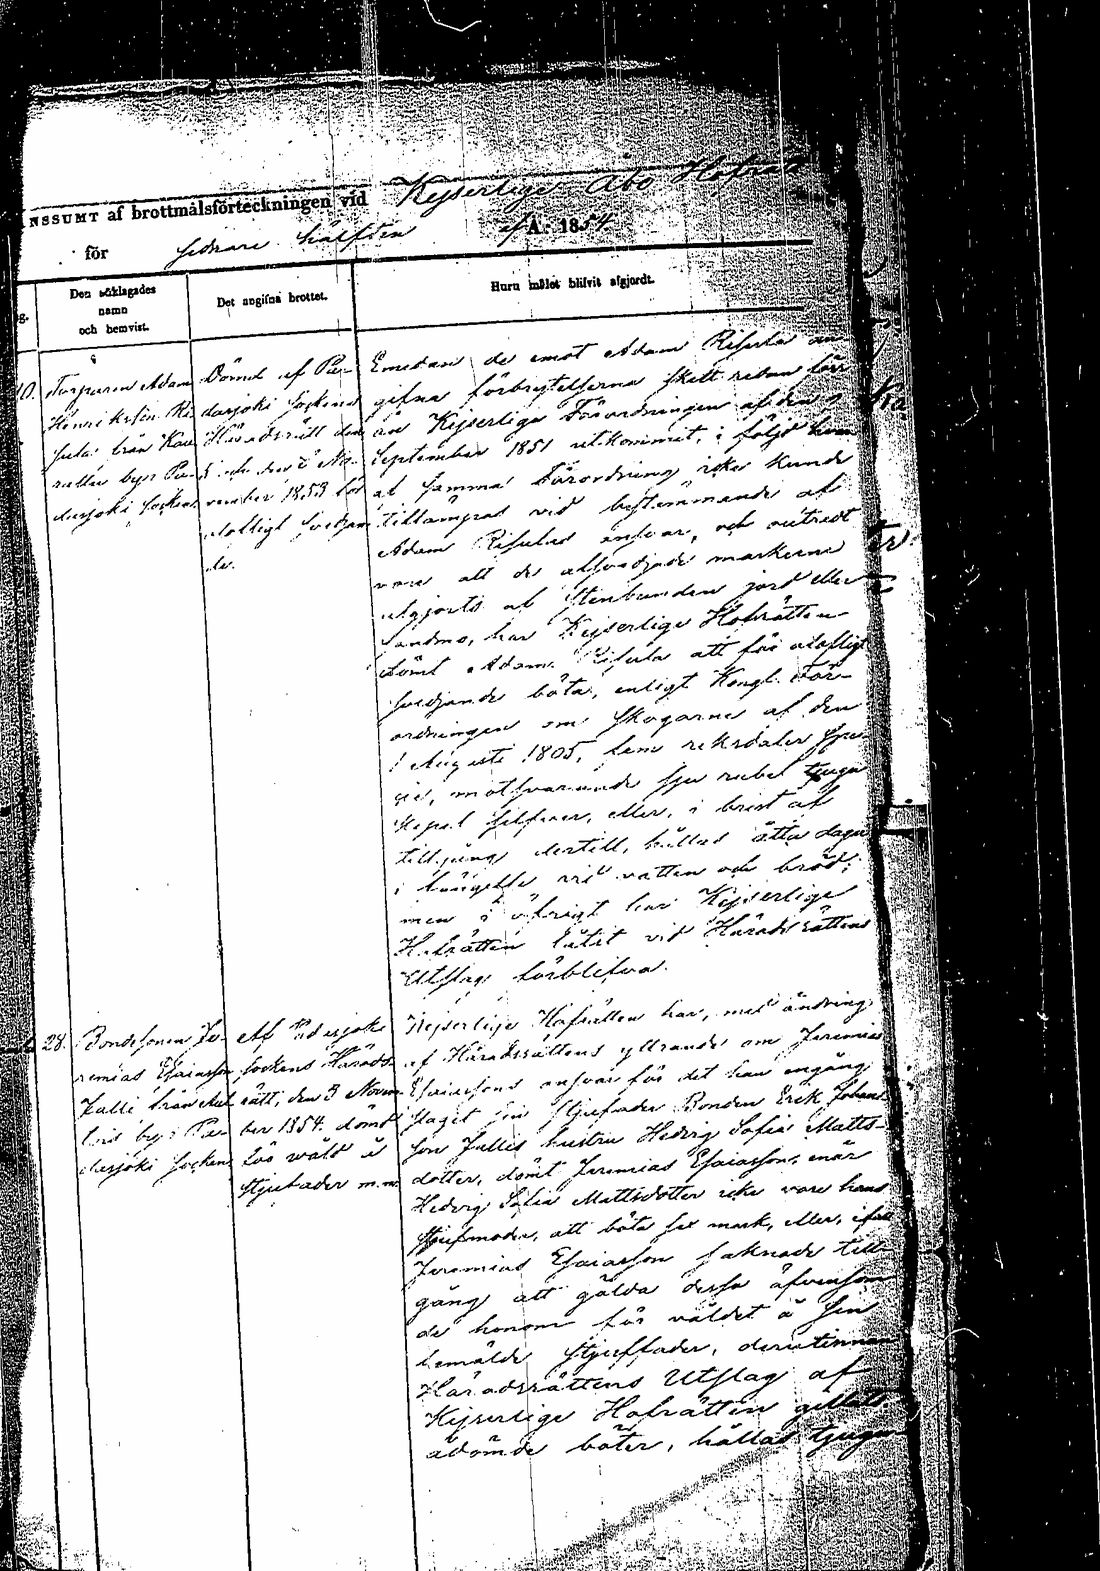 NSSUMT af brottmålsförteckningen vid Kejserlige Åbo Hofrätt
för sednare hälften af Å. 1854.
Den anklagades
namn
och hemvist.
Det angifna brottet.
Huru målet blifvit afgjordt.
10.
Torparen Adam
Henriksson Ri-
sula från Kau-
rulla by i Pa-
dasjoki socken
Dömd af Pa-
dasjoki sockens
Häradsrätt den
November 1853 för
olofligt svedjan-
de.
Emedan de emot Adam Risula an-
gifna förbrytelserna skett redan förr
än Kejserliga Förordningen af den
September 1851 utkommit, i följd hvar-
af samma Förordning icke kunde
tillämpas vid bestämmande af
Adam Risulas ansvar, och utredt
vore att de afsvedjade markerne
utgjorts af stenbunden jord eller
sandmo, har Kejserlige Hofrätten
dömt Adam Risula att för olofligt
svedjande böta, enligt Kongl. För-
ordningen om skogarne af den
1 Augusti 1805, fem riksdaler spe-
cie, motsvarande sju rubel tjugu
kopek silfver, eller, i brist af
tillgång dertill, hållas åtta dagar
i fängelse vid vatten och bröd;
men i öfrigt har Kejserlige
Hofrätten låtit vid Häradsrättens
Utslag förblifva.
28.
Bondesonen Je-
remias Esaiasson
Julli från
by i Pa-
dasjoki socken
Af Padasjoki
sockens Härads-
rätt, den 3 Novem-
ber 1854 dömd
för våld å
stjuffader m.m.
Kejserlige Hofrätten har, med ändring
af Häradsrättens yttrande om Jeremias
Esaiassons ansvar för det han engång
slaget sin stjuffader Bonden Erik Johans-
son Jullis hustru Hedvig Sofia Matts-
dotter, dömt Jeremias Esaiasson, enär
Hedvig Sofia Mattsdotter icke vore hans
stjufmoder, att böta sex mark, eller, ifall
Jeremias Esaiasson saknade till-
gång att gälda dessa äfvensom
de honom för våldet å sin
bemälde stjuffader, derutinnan
Häradsrättens Utslag af
Kejserlige Hofrätten gillats
ådömde böter, hållas tjugu